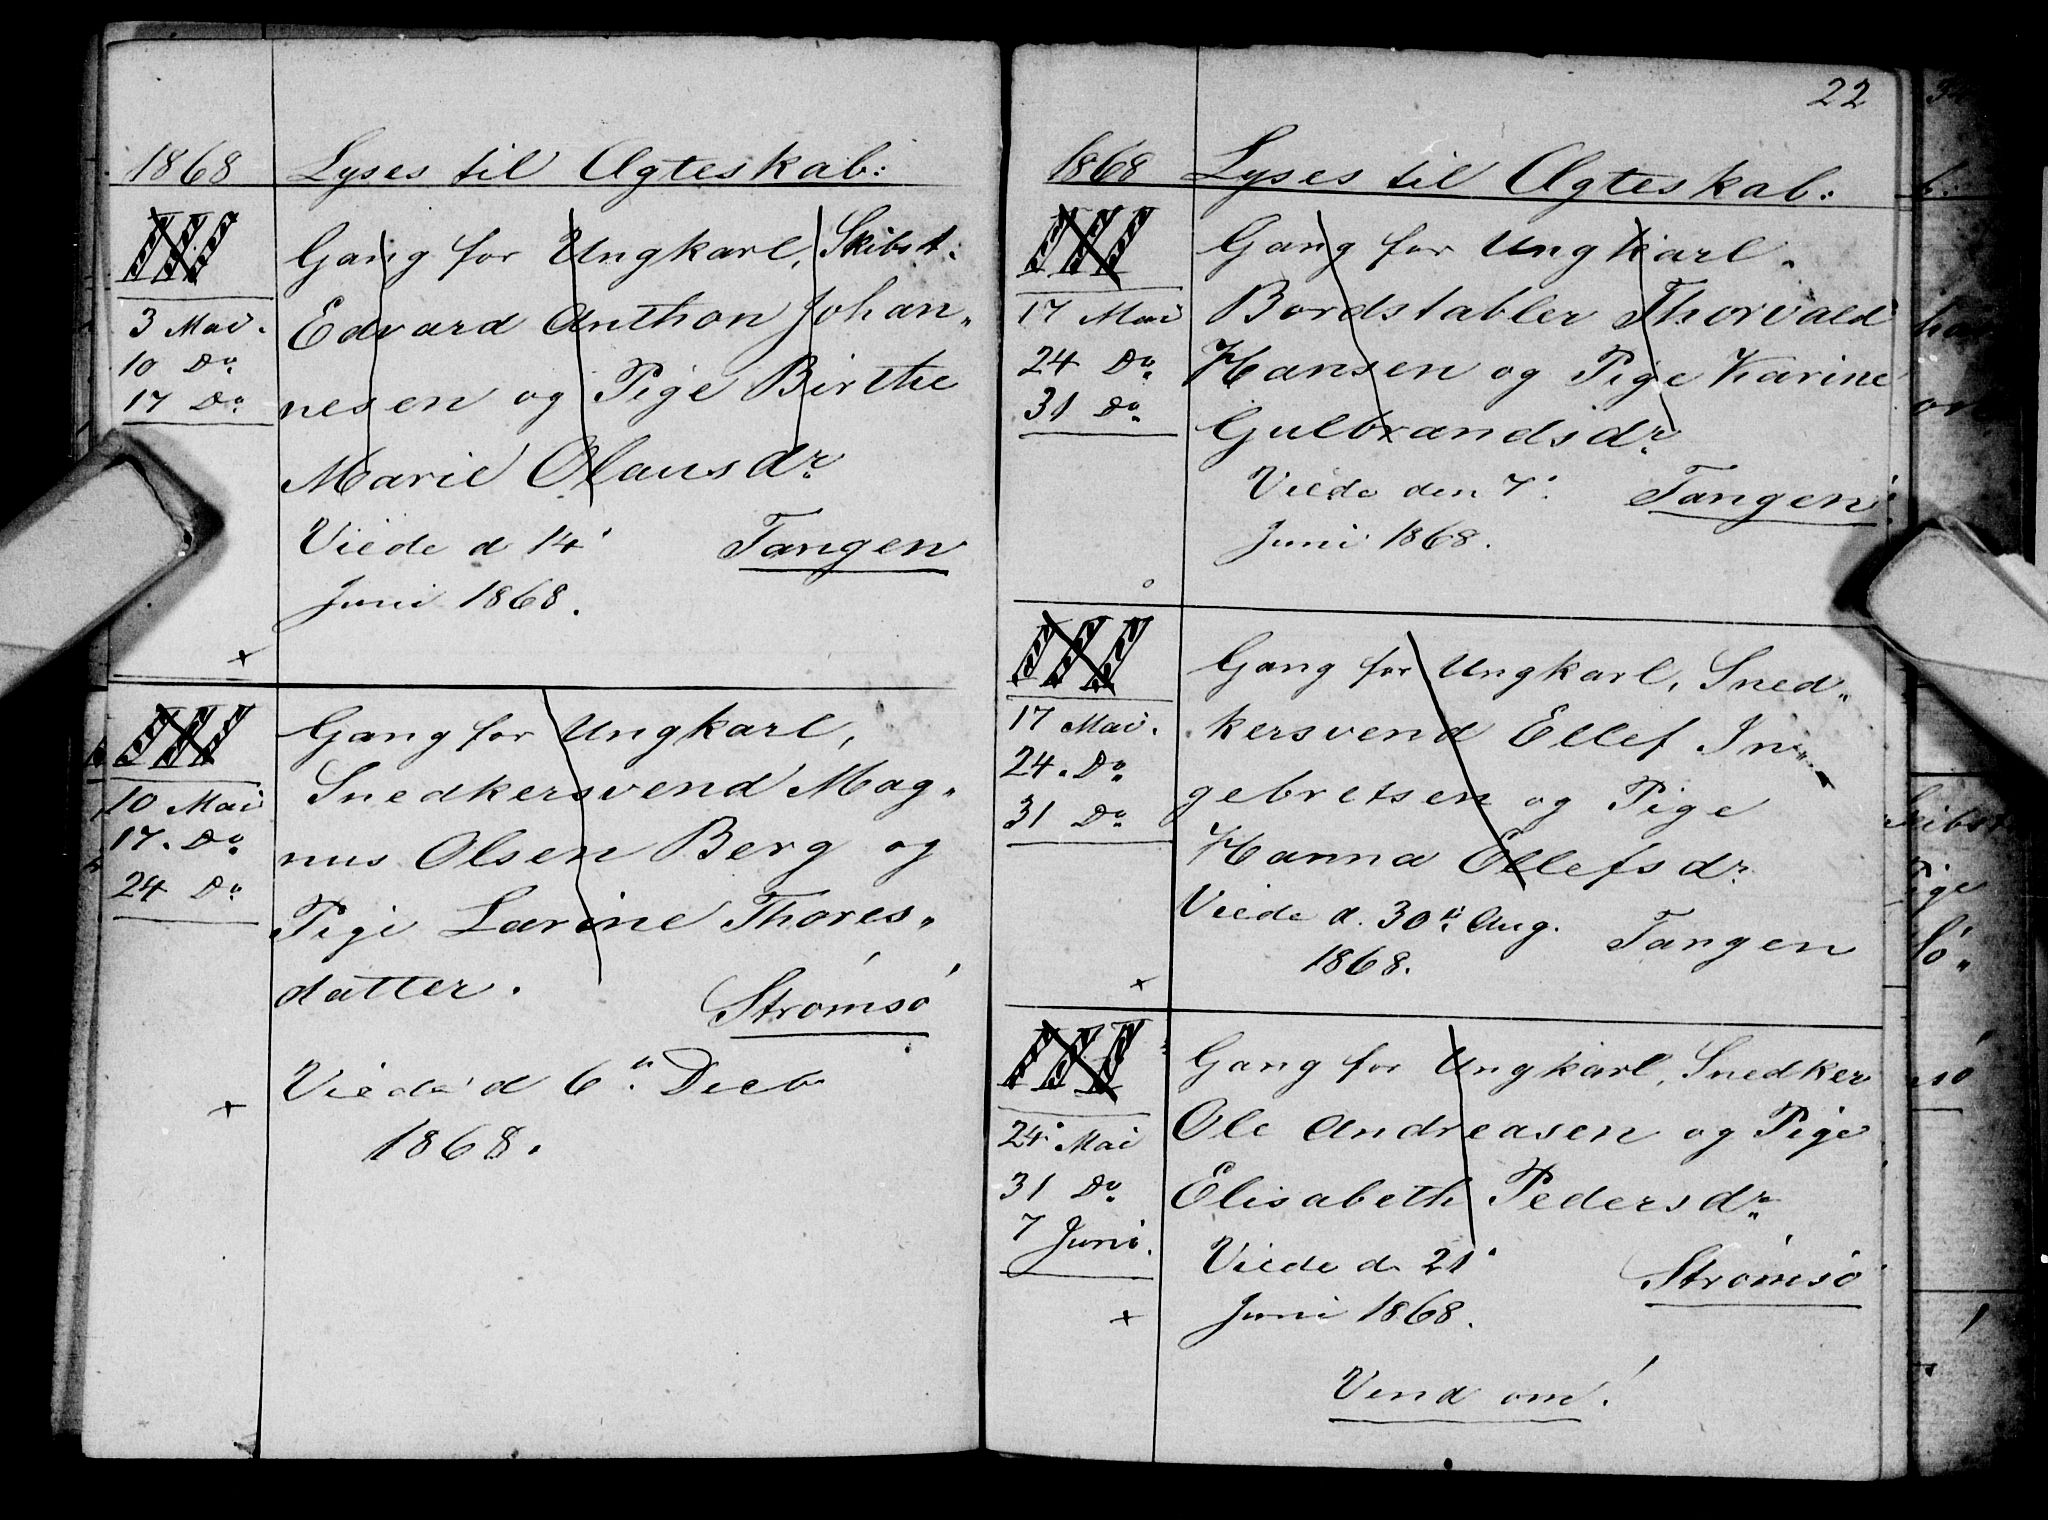 1868 Lyses til Ægteskab:
III Gang for Ungkarl, Skibst:
3 Mai. Edvard Anthon Johan„
10 Do nesen og Pige Birthe
17 Do Marie Olausdr
Viede d 14' Tangen
Juni 1868.
+
III Gang for Ungkarl,
10 Mai Snedkersvend Mag„
17. Do nus Olsen Berg og
24 Do Pige Larine Thores„
datter. Strømsø
Viede d 6" Decb
+ 1868.
22
1868 Lyses til Ægteskab:
III Gang for Ungkarl.
17 Mai Bordstabler Thorvald
24 Do Hansen og Pige Karine
31 Do Gulbrandsdr
Viede den 7' Tangen
Juni 1868.
III Gang for Ungkarl, Sned„
17 Mai. kersvend Ellef In„
24. Do gebretsen og Pige
31 Do Hanna Ellefsdr
Viede d. 30te Aug. Tangen
1868.
+
III Gang for Ungkarl, Snedker
24 Mai Ole Andreasen og Pige
31 Do Elisabeth Pedersdr
7 Juni. Viede d 21' Strømsø
+ Juni 1868.
Vend om!